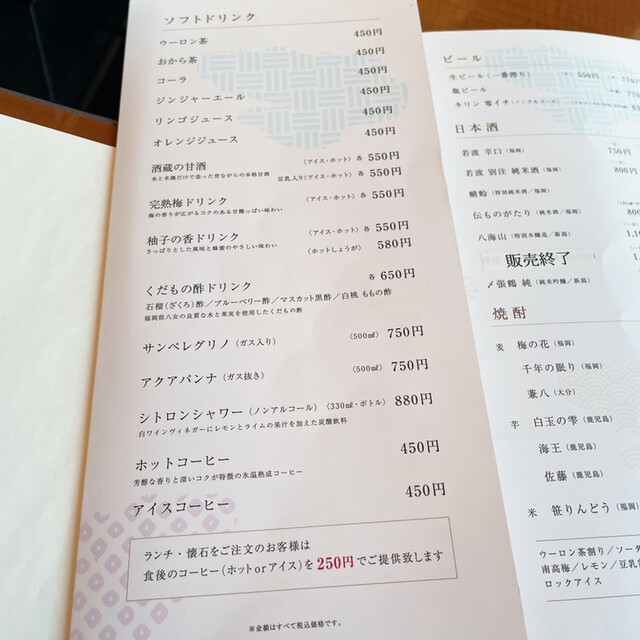 ソフトドリンク
ウーロン茶 450円
おから茶 450円
コーラ 450円
ジンジャーエール 450円
リンゴジュース 450円
オレンジジュース 450円
酒蔵の甘酒 〈アイス・ホット〉各 550円
米と米麹だけで造った昔ながらの本格甘酒 豆乳入り〈アイス・ホット〉各 550円
完熟梅ドリンク 〈アイス・ホット〉各 550円
梅の香りが広がるコクのある甘酸っぱい味わい
柚子の香ドリンク 〈アイス・ホット〉各 550円
さっぱりとした風味と蜂蜜のやさしい味わい 〈ホットしょうが〉 580円
くだもの酢ドリンク 各 650円
石榴(ざくろ)酢／ブルーベリー酢／マスカット黒酢／白桃 ももの酢
福岡県八女の良質な水と果実を使用したくだもの酢
サンペレグリノ(ガス入り) 〈500㎖〉 750円
アクアパンナ(ガス抜き) 〈500㎖〉 750円
シトロンシャワー(ノンアルコール) 〈330㎖・ボトル〉 880円
白ワインヴィネガーにレモンとライムの果汁を加えた炭酸飲料
ホットコーヒー 450円
芳醇な香りと深いコクが特徴の氷温熟成コーヒー
アイスコーヒー 450円
ランチ・懐石をご注文のお客様は
食後のコーヒー(ホットorアイス)を250円でご提供致します
※金額はすべて税込価格です。
ビール
生ビール(一番搾り) 550円
瓶ビール
キリン 零イチ(ノンアルコール)
日本酒
若波 辛口(福岡) 750円
若波 別注 純米酒(福岡) 800円
蜻蛉(特別純米酒／福岡)
伝ものがたり(純米酒／福岡)
八海山(特別本醸造／新潟)
販売終了
〆張鶴 純(純米吟醸／新潟)
焼酎
麦 梅の花(福岡)
千年の眠り(福岡)
兼八(大分)
芋 白玉の雫(鹿児島)
海王(鹿児島)
佐藤(鹿児島)
米 笹りんどう(福岡)
ウーロン茶割り／ソーダ
南高梅／レモン／豆乳
ロックアイス